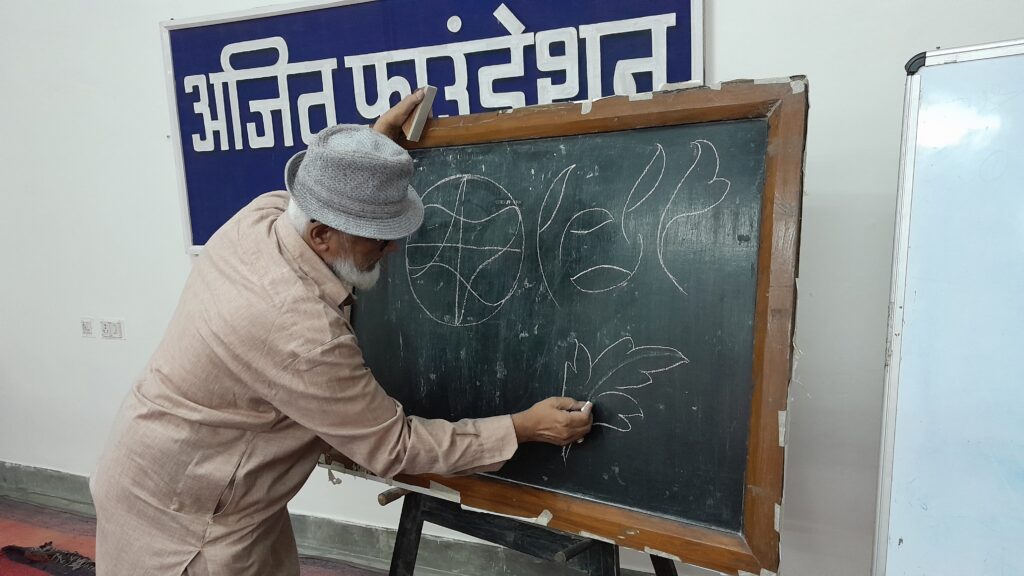 अजित फाउंडेशन